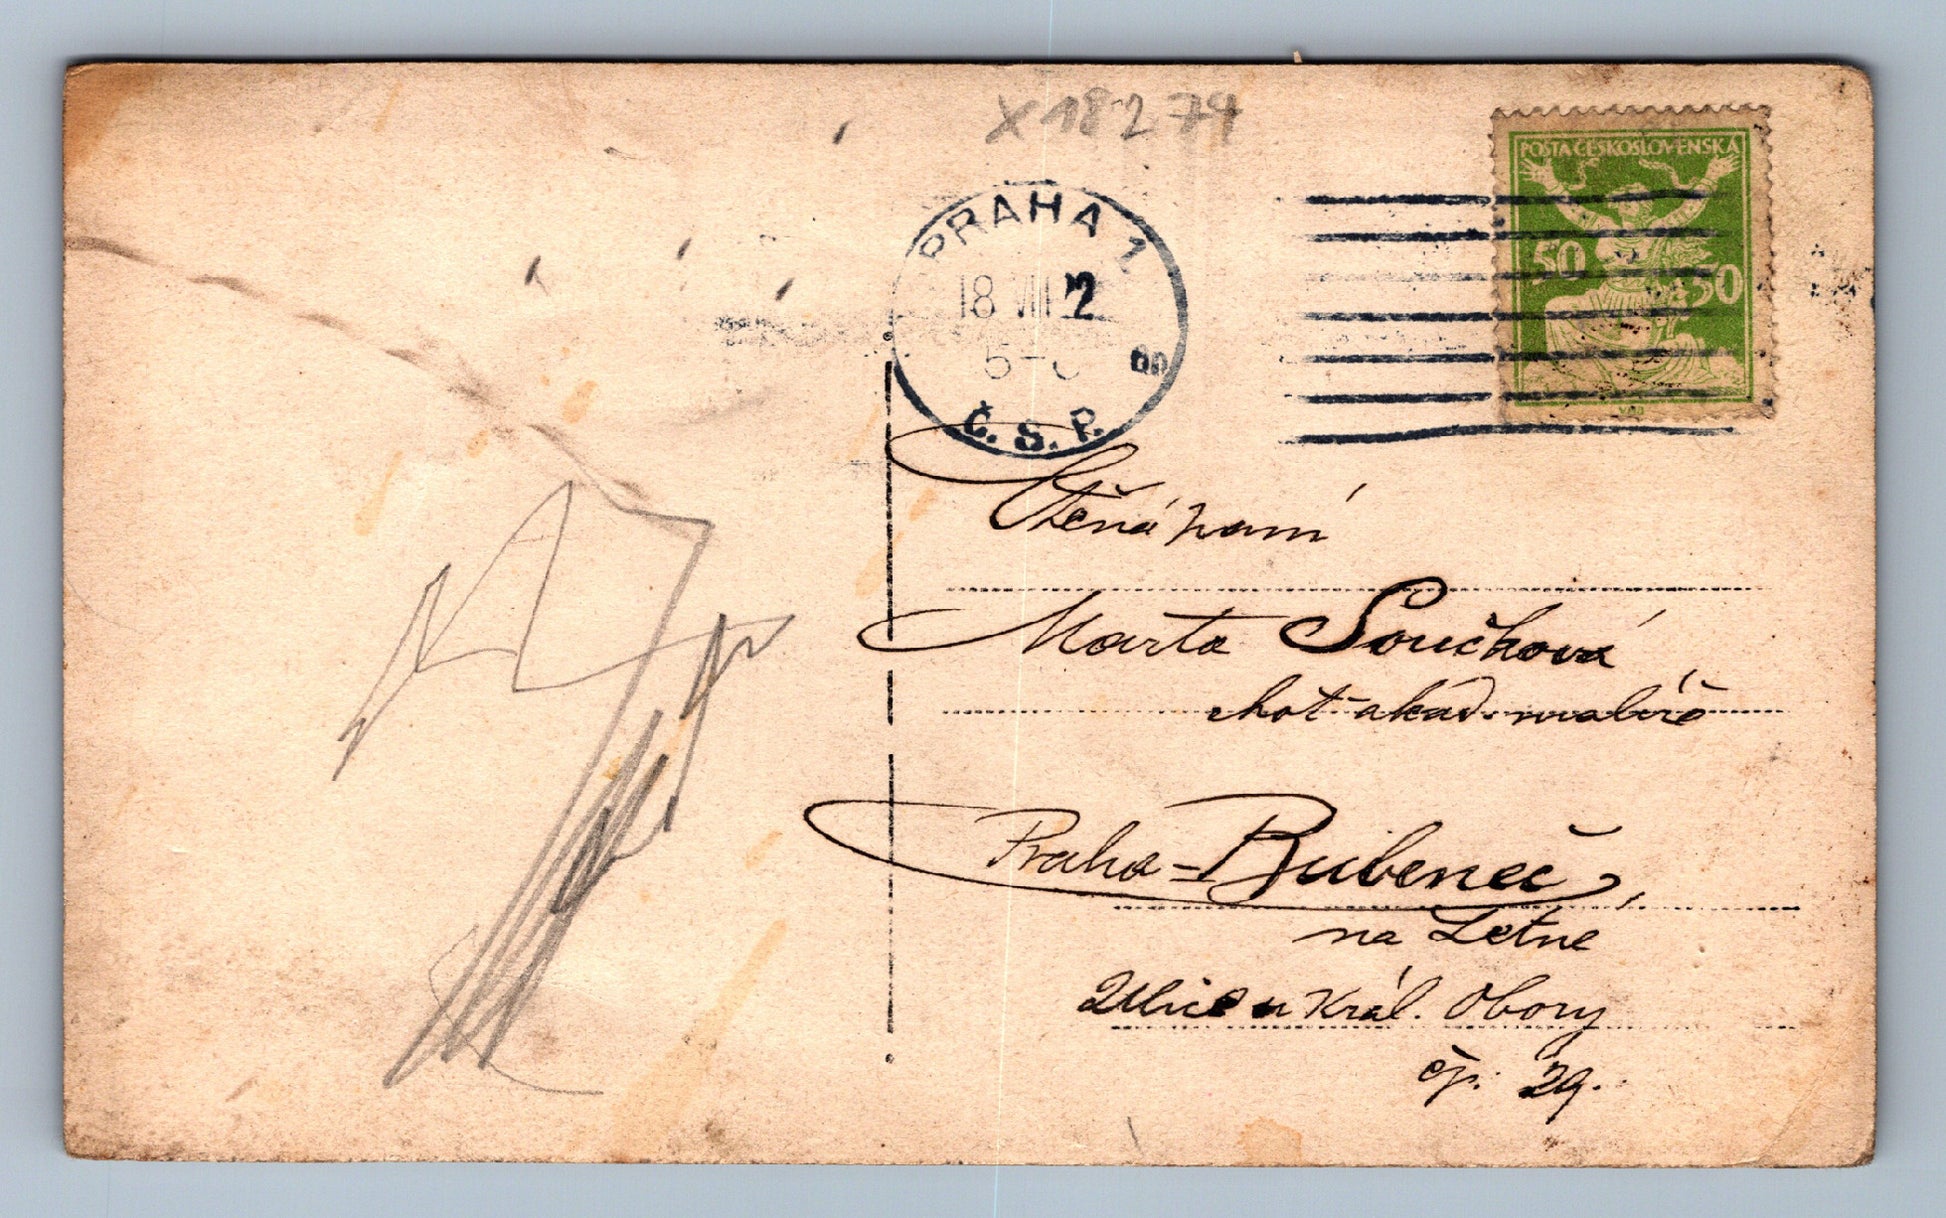 X 18274
POSTA ČESKOSLOVENSKÁ
50 50
PRAHA 1
18 VIII 2
Č. S. P.
Ctěná paní
Marta Součková
chot akad. malíře
Praha - Bubeneč,
na Letne
Ulice u Král. Obory
čp. 29.